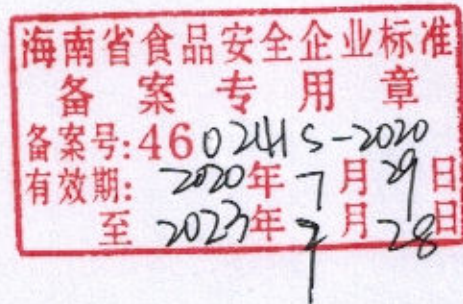 海南省食品安全企业标准
备案专用章
备案号:460241S-2020
有效期: 2020年7月29日
至 2023年7月28日